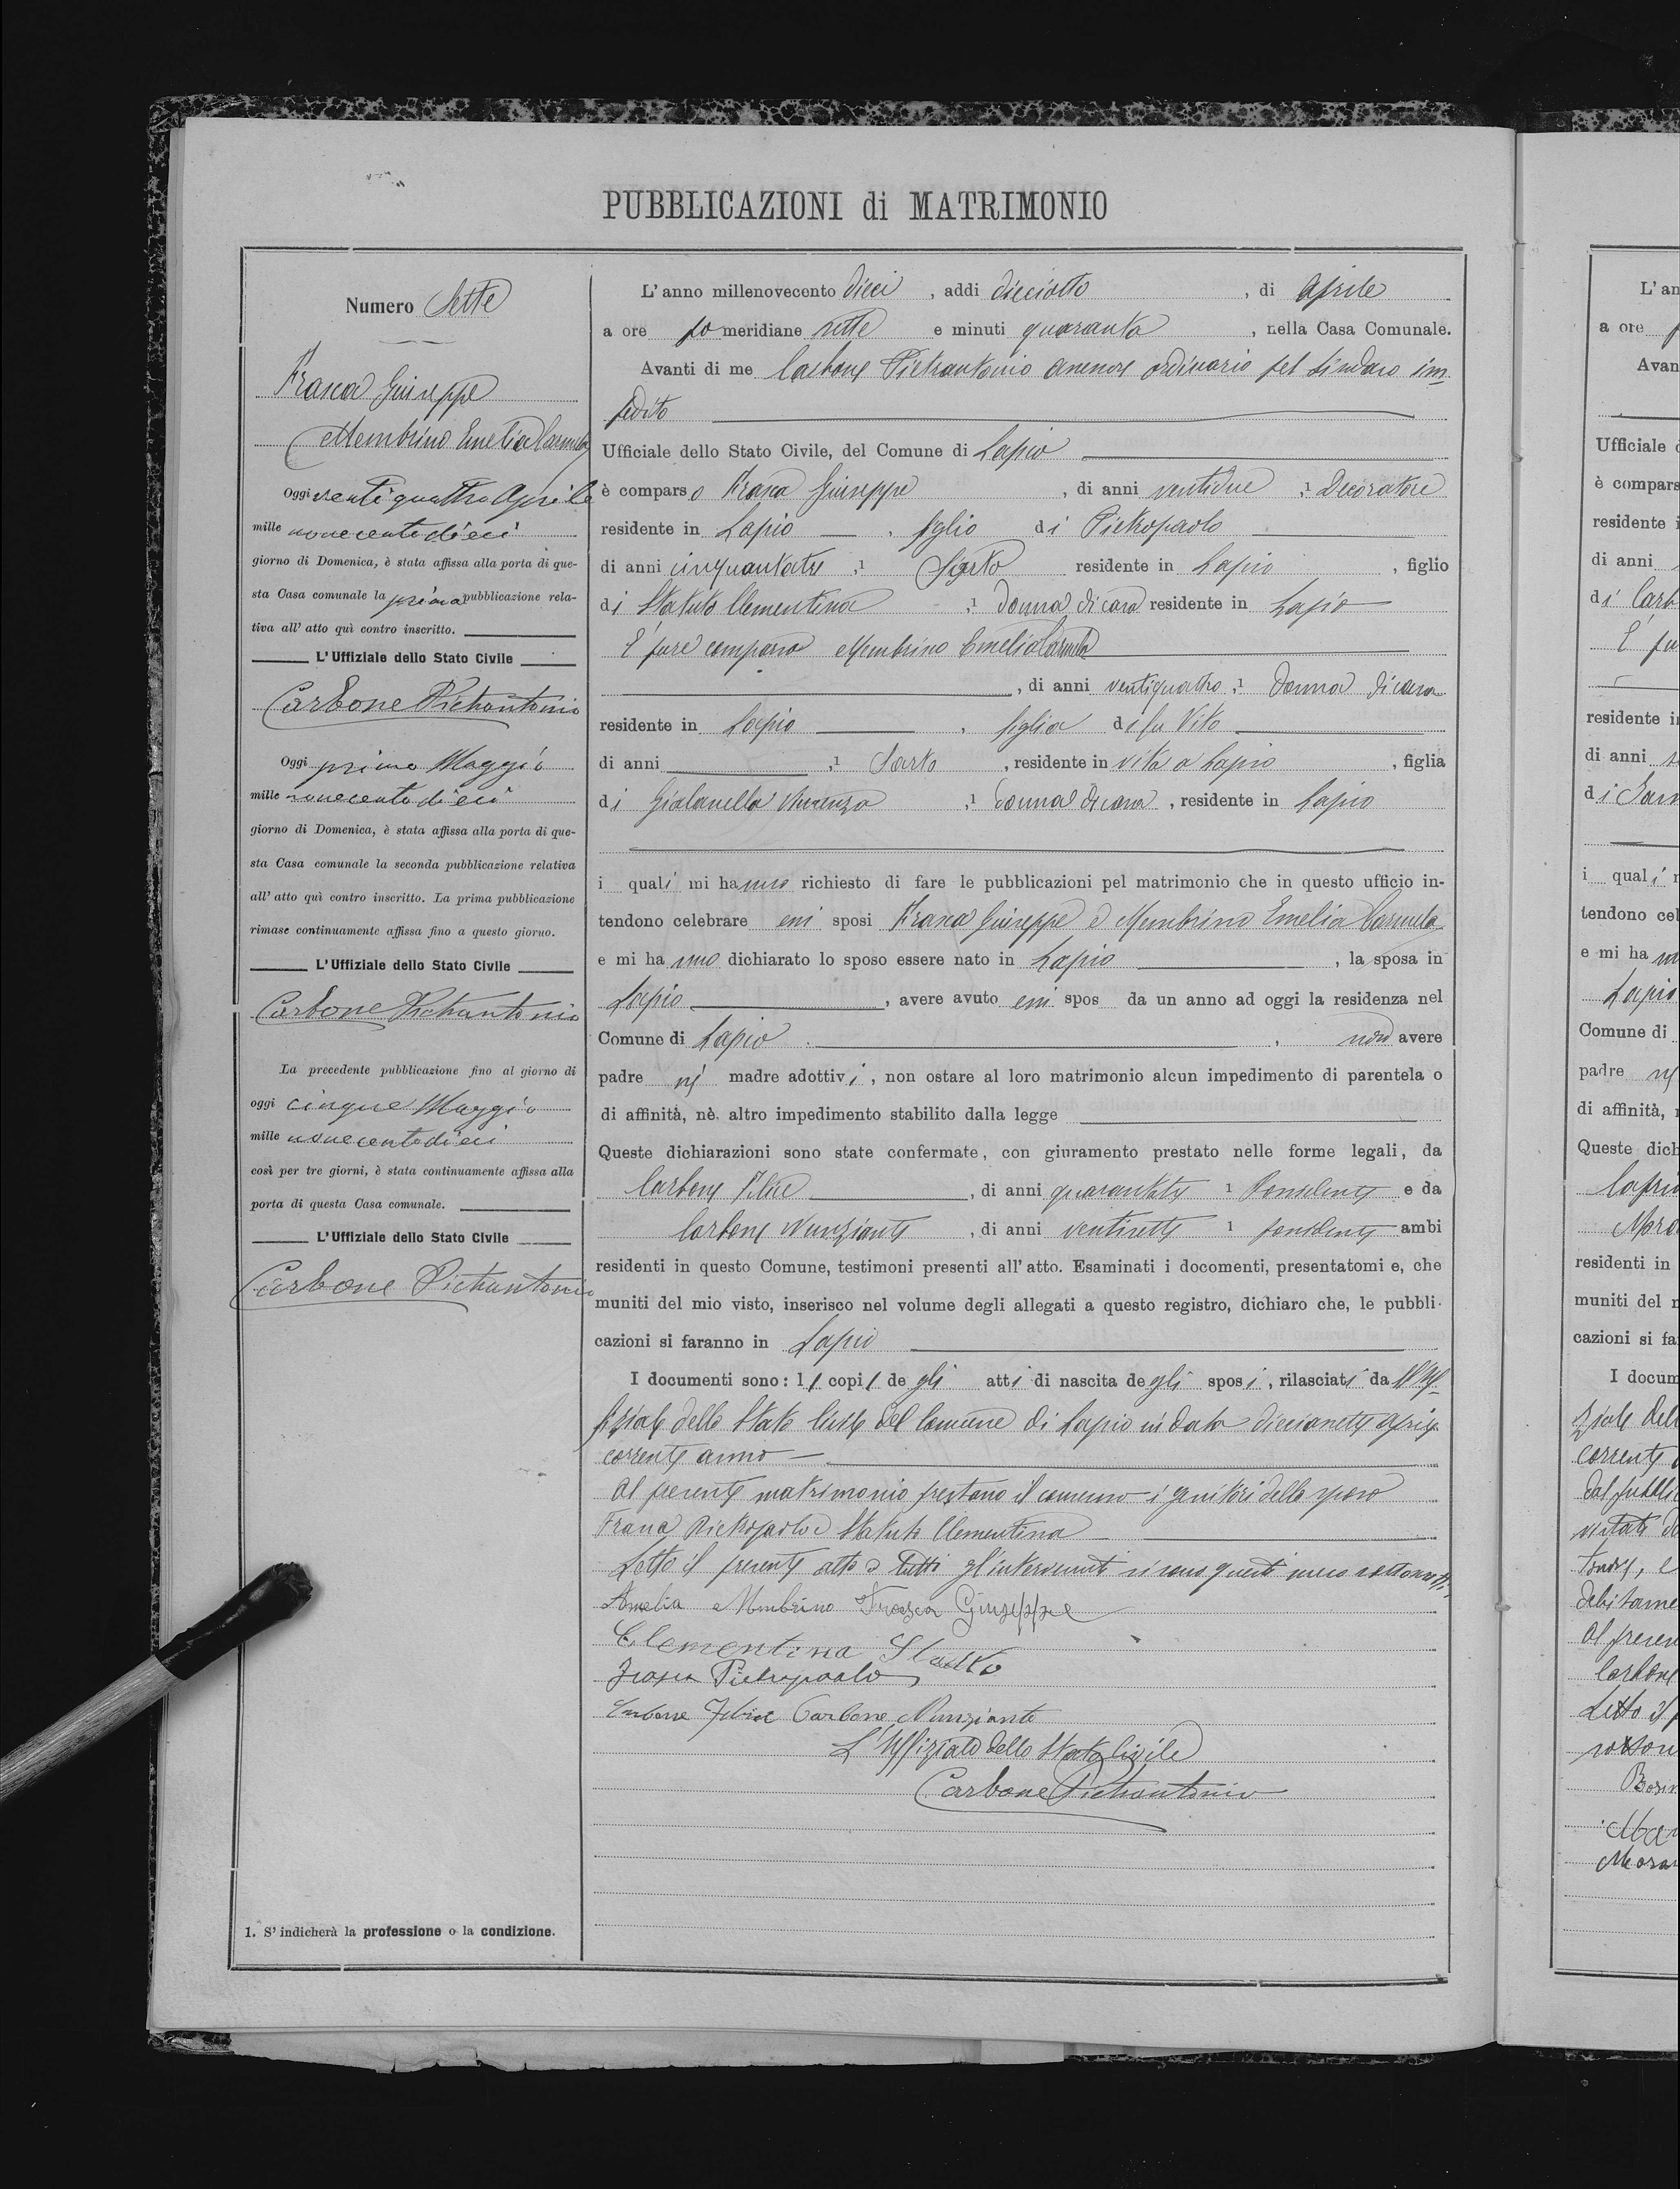 PUBBLICAZIONI di MATRIMONIO
Numero Sette
Frasca Giuseppe
Membrino Emelia Carmela
Oggi ventiquattro Aprile
mille novecentodieci
giorno di Domenica, è stata affissa alla porta di que-
sta Casa comunale la prima pubblicazione rela-
tiva all' atto quì contro inscritto.
L'Uffiziale dello Stato Civile
Carbone Pietrantonio
Oggi primo Maggio
mille novecentodieci
giorno di Domenica, è stata affissa alla porta di que-
sta Casa comunale la seconda pubblicazione relativa
all' atto quì contro inscritto. La prima pubblicazione
rimase continuamente affissa fino a questo giorno.
L'Uffiziale dello Stato Civile
Carbone Pietrantonio
La precedente pubblicazione fino al giorno di
oggi cinque Maggio
mille novecentodieci
così per tre giorni, è stata continuamente affissa alla
porta di questa Casa comunale.
L'Uffiziale dello Stato Civile
Carbone Pietrantonio
1. S' indicherà la professione o la condizione.
L' anno millenovecento dieci, addi dieciotto, di Aprile
a ore pomeridiane sette e minuti quaranta, nella Casa Comunale.
Avanti di me Carbone Pietrantonio assessore ordinario pel Sindaco im-
pedito
Ufficiale dello Stato Civile, del Comune di Lapio
è comparso Frasca Giuseppe, di anni ventidue, 1 Decoratore
residente in Lapio, figlio di Pietropaolo
di anni cinquantatre, 1 Sarto residente in Lapio, figlio
di Statuto Clementina, 1 donna di casa residente in Lapio
È pure comparsa Membrino Emelia Carmela
, di anni ventiquattro, 1 donna di casa
residente in Lapio, figlia di fu Vito
di anni, 1 Sarto, residente in vita a Lapio, figlia
di Vincenza, 1 donna di casa, residente in Lapio
i quali mi hanno richiesto di fare le pubblicazioni pel matrimonio che in questo ufficio in-
tendono celebrare essi sposi Frasca Giuseppe e Membrino Emelia Carmela
e mi hanno dichiarato lo sposo essere nato in Lapio, la sposa in
Lapio, avere avuto essi spos da un anno ad oggi la residenza nel
Comune di Lapio, non avere
padre nè madre adottivi, non ostare al loro matrimonio alcun impedimento di parentela o
di affinità, nè altro impedimento stabilito dalla legge
Queste dichiarazioni sono state confermate, con giuramento prestato nelle forme legali, da
Carbone Felice, di anni 1 possidente e da
Carbone Nunziante, di anni ventisette 1 possidente ambi
residenti in questo Comune, testimoni presenti all' atto. Esaminati i documenti, presentatomi e, che
muniti del mio visto, inserisco nel volume degli allegati a questo registro, dichiaro che, le pubbli-
cazioni si faranno in Lapio
I documenti sono: le copie degli atti di nascita degli sposi, rilasciati dall'Uf-
fiziale dello Stato Civile del Comune di Lapio in data diecisette Aprile
corrente anno
Al presente matrimonio prestano il consenso i genitori dello sposo
Frasca Pietropaolo e Statuto Clementina
Letto il presente atto a tutti gl'intervenuti si sono questi meco sottoscritti
Amelia Membrino Frasca Giuseppe
Clementina Statuto
Frasca Pietropaolo
Carbone Felice Carbone Nunziante
L'Uffiziale dello Stato Civile
Carbone Pietrantonio
L' an
a ore
Avan
Ufficiale
è compars
residente i
di anni
di Carb
residente i
di anni
i quali
tendono cel
e mi ha
Lapio
Comune di
padre nè
di affinità,
Queste dich
residenti in
muniti del
cazioni si fa
I docum
corrente